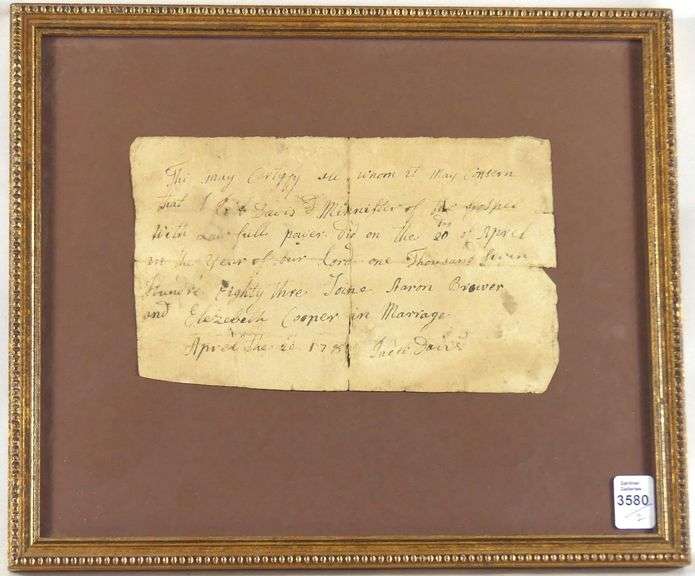 This may Certyfy all whom it May Consern
that I Davis Minnister of the gospel
With Law full power did on the 20 of Aprel
in the Year of our Lord one Thousand Seven
Hundre Eighty thre Joine Aaron Brower
and Elezebeth Cooper in Marriage
Aprel The 20 178
Gardiner
Galleries
3580